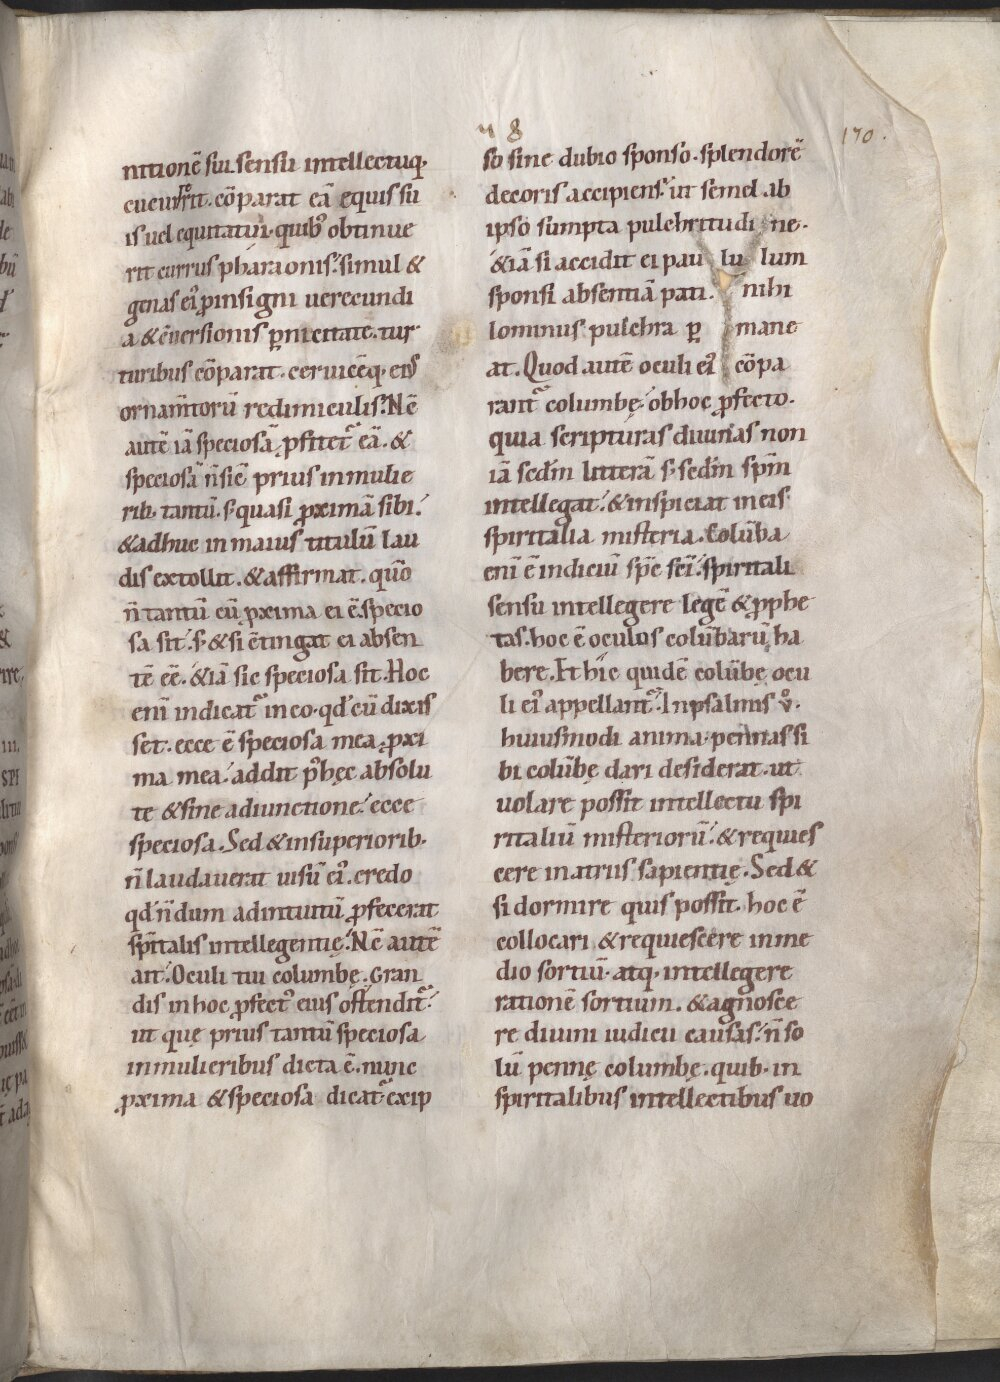 170.
nitionē sui. sensu intellectuq·
cucurrit. cōparat eā equis su
is uel equitatui. quibꝰ obtinue
rit currus pharaonis: simul &
genas eiꝰ pinsigni uerecundi
a & ēuersionis ꝑnicitate. tur
turibus cōparat. ceruicēq· eiꝰ
ornam̄torū redimiculis: Nē
autē iā speciosā ꝓfitet̄ eā. &
speciosā n̄ sic̄ prius in mulie
rib· tantū. s; quasi ꝓximā sibi:
& adhuc in maius titulū lau
dis extollit. & affirmat. quo̅
n̄ tantū cū ꝓxima ei ē. specio
sa sit: s; & si c̄tingat ei absen
tē eē. & iā sic speciosa sit. Hoc
eni̅ indicat̄ in eo. qd̄ cū dixis
set. ecce ē speciosa mea ꝓxi
ma mea: addit p̄ hęc absolu
te & sine adiunctione: ecce
speciosa. Sed & in superiorib·
n̄ laudauerat uisū eiꝰ. credo
qd̄ n̄dum ad intuitū ꝓfecerat
sp̄italis intellegentię: N̄c autē
ait: Oculi tui columbę. Gran
dis in hoc ꝓfectꝰ eius ostendit̄:
ut quę prius tantū speciosa
in mulieribus dicta ē. nunc
ꝓxima & speciosa dicat̄ ex ip
so sine dubio sponso. splendorē
decoris accipiens: ut semel ab
ipso sumpta pulchritudi ne.
& iā si accidit ei pau lu lum
sponsi absentiā pati. nihi
lominus pulchra ꝑ mane
at. Quod autē oculi eiꝰ cōpa
rant̄ columbę: ob hoc ꝓfecto.
quia scripturas diuinas non
iā sedm̄ litterā s; sedm̄ sp̄m
intellegat: & inspiciat in eis
spiritalia misteria. Colūba
eni̅ ē indiciū sp̄c sc̄i: spiritali
sensu intellegere legē & ꝓphe
tas. hoc ē oculos colūbarū ha
bere. Et hic quidē colūbę ocu
li eiꝰ appellant̄. In psalmis v̊.
huiusmodi anima pennas si
bi colūbę dari desiderat. ut
uolare possit intellectu spi
ritaliū misteriorū: & requies
cere in atriis sapientię. Sed &
si dormire quis possit. hoc ē
collocari & requiescere in me
dio sortiū. atq· intellegere
rationē sortium. & agnosce
re diuini iudicii causas: n̄ so
lū pennę columbę. quib· in
spiritalibus intellectibus uo